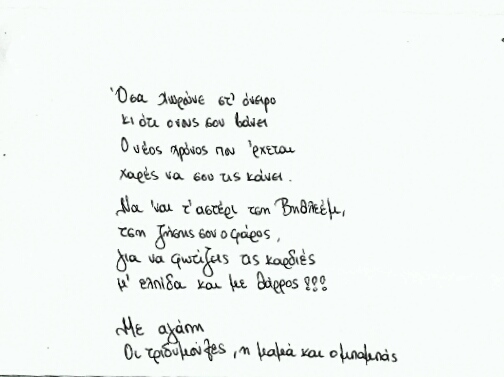 Όσα χωρούνε στ' όνειρο
κι ότι ο νους σου βάνει
Ο νέος χρόνος που έρχεται
χαρές να σου τις κάνει.
Να 'ναι τ' αστέρι τση Βηθλεέμ,
τση ζήσης σου ο φάρος,
για να φωτίζεις τις καρδιές
μ' ελπίδα και με θάρρος!!!
Με αγάπη
Οι τριδυμούλες, η μαμά και ο μπαμπάς